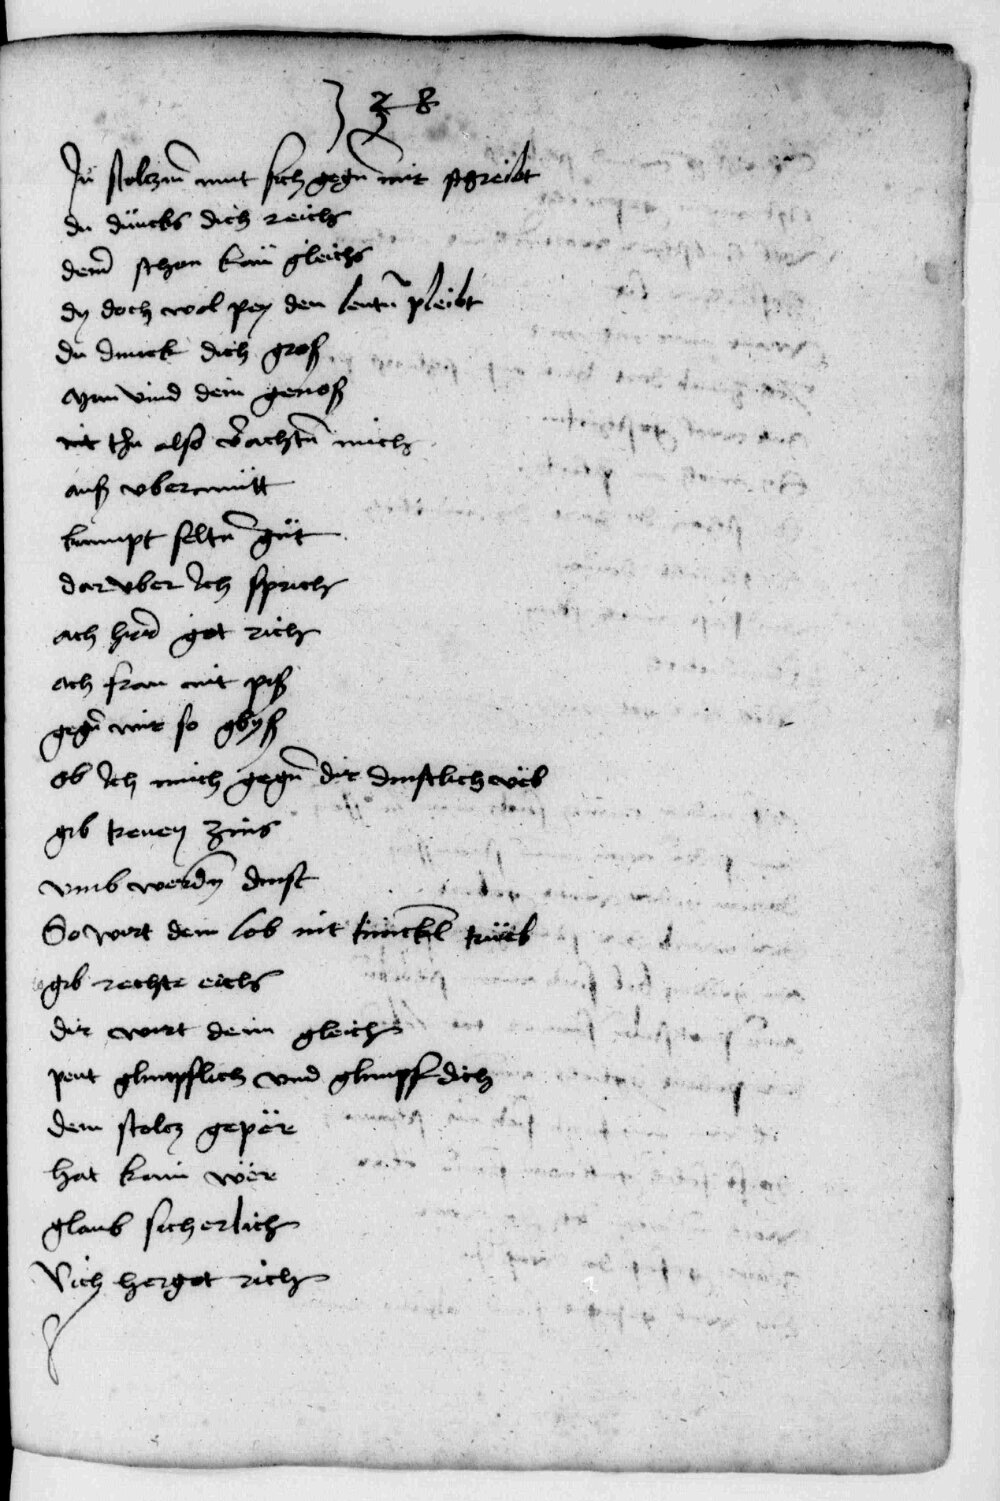 328
In stolczm mut sich gegn mir schreibt
du duncks dich reich
demd schon kain gleichs
dy doch wol pey den leutn pleibt
du dunck dich groß
man vind dein genoß
nit thu also verachtn mich
auß vbermutt
kumpt seltn gut
dar vber Ich sprich
ach herr got rich
ach fraw nit piß
gegn mir so
ob Ich mich gegn dir dinstlich vëb
gib trewen zins
vmb werdn dinst
So wirt dein lob nit trüeb
gib rechte eich
dir wirt dein gleich
peut glimpflich vnd glimpf dich
dem stolcz gepër
hat kain wër
glaub sicherlich
Vich hergot rich